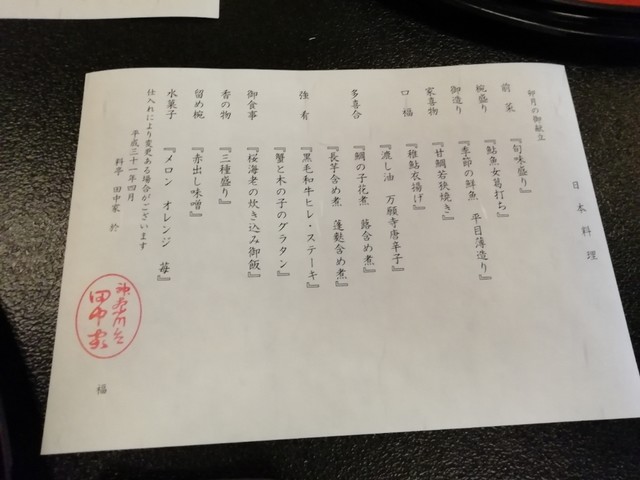 日本料理
卯月の御献立
前菜 『旬味盛り』
椀盛り 『鮎魚女葛打ち』
御造り 『季節の鮮魚 平目薄造り』
家喜物 『甘鯛若狭焼き』
口福 『稚鮎衣揚げ』
『漉し油 万願寺唐辛子』
多喜合 『鯛の子花煮 蕗含め煮』
『長芋含め煮 蓬麩含め煮』
強肴 『黒毛和牛ヒレ・ステーキ』
『蟹と木の子のグラタン』
御食事 『桜海老の炊き込み御飯』
香の物 『三種盛り』
留め椀 『赤出し味噌』
水菓子 『メロン オレンジ 苺』
仕入れにより変更ある場合がございます
平成三十一年四月
料亭 田中家 於
神奈川台
田中家
福